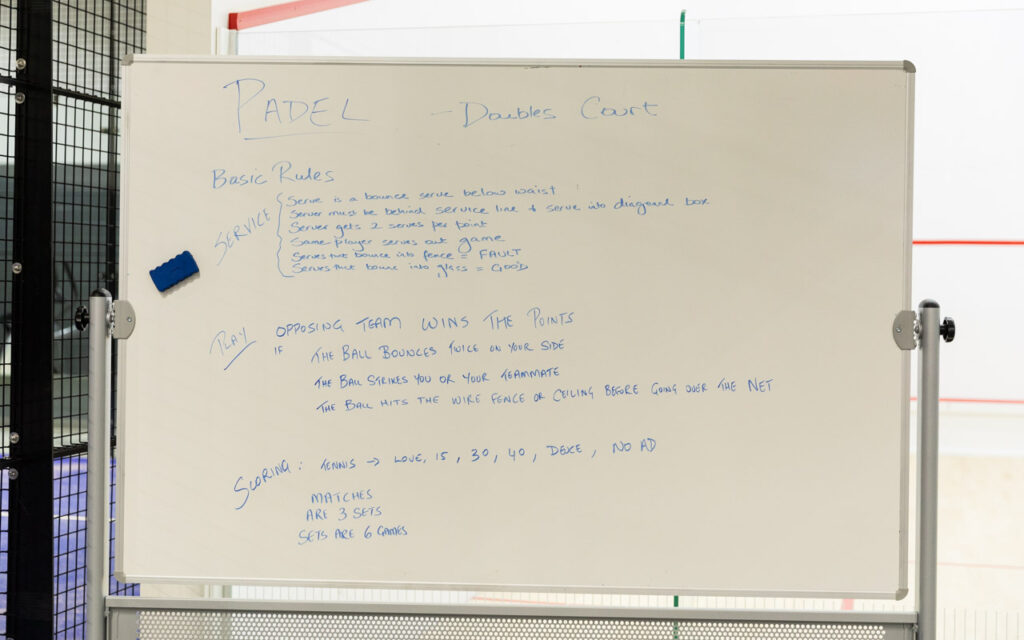 PADEL - Doubles Court
Basic Rules
SERVICE
Serve is a bounce serve below waist
Server must be behind service line & serve into diagonal box
Server gets 2 serves per point
Same player serves out game
Serves that bounce into fence = FAULT
Serves that bounce into glass = GOOD
PLAY
OPPOSING TEAM WINS THE POINTS
IF THE BALL BOUNCES TWICE ON YOUR SIDE
THE BALL STRIKES YOU OR YOUR TEAMMATE
THE BALL HITS THE WIRE FENCE OR CEILING BEFORE GOING OVER THE NET
SCORING: TENNIS → LOVE, 15, 30, 40, DEUCE, NO AD
MATCHES
ARE 3 SETS
SETS ARE 6 GAMES